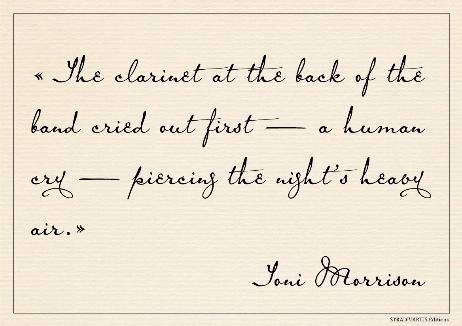 « The clarinet at the back of the
band cried out first — a human
cry — piercing the night's heavy
air.»
Toni Morrison
STRADIVARIUS Editions